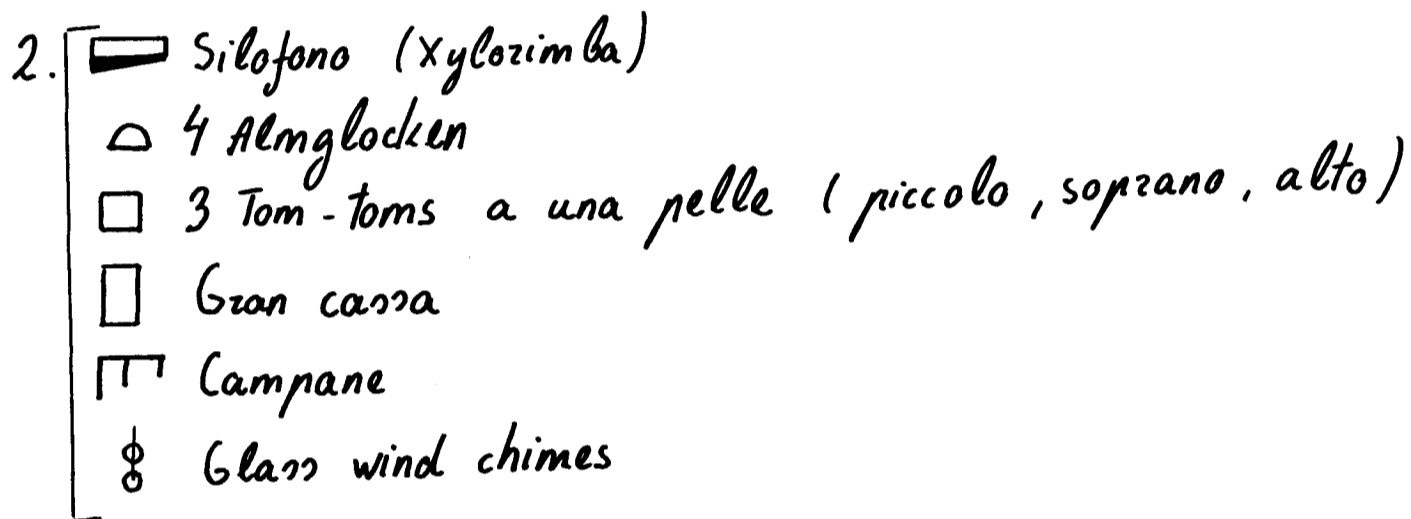 2. Silofono (Xylorimba)
4 Almglocken
3 Tom-toms a una pelle (piccolo, soprano, alto)
Gran cassa
Campane
Glass wind chimes